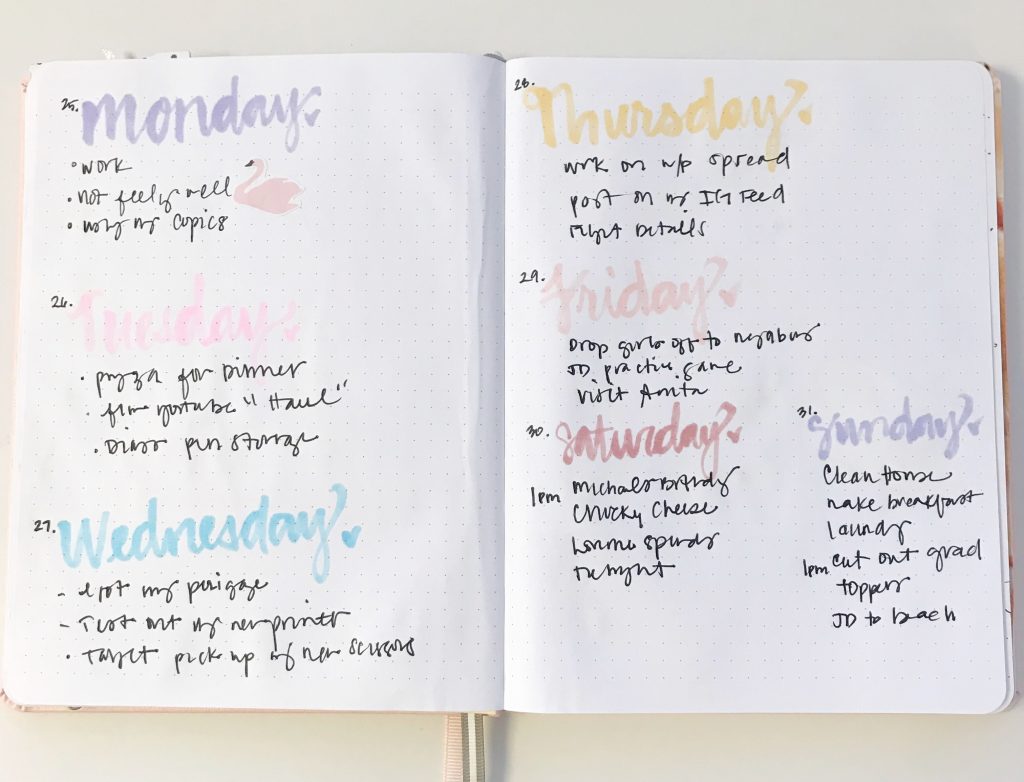 25. Monday
• work
• not feeling well
• my copics
26. Tuesday
• for Dinner
• film youtube "Haul"
• pen storage
27. Wednesday
- my
- Test out my new printer
• Target pick up my new scissors
28. Thursday
work on w/p spread
post on my IG Feed
Details
29. Friday
Drop girls off to neighbors
JD. practice game
visit Anita
30. Saturday
1pm Michaels
Chucky Cheese
31. Sunday
Clean House
make breakfast
laundry
1pm cut out grad
toppers
JD to beach